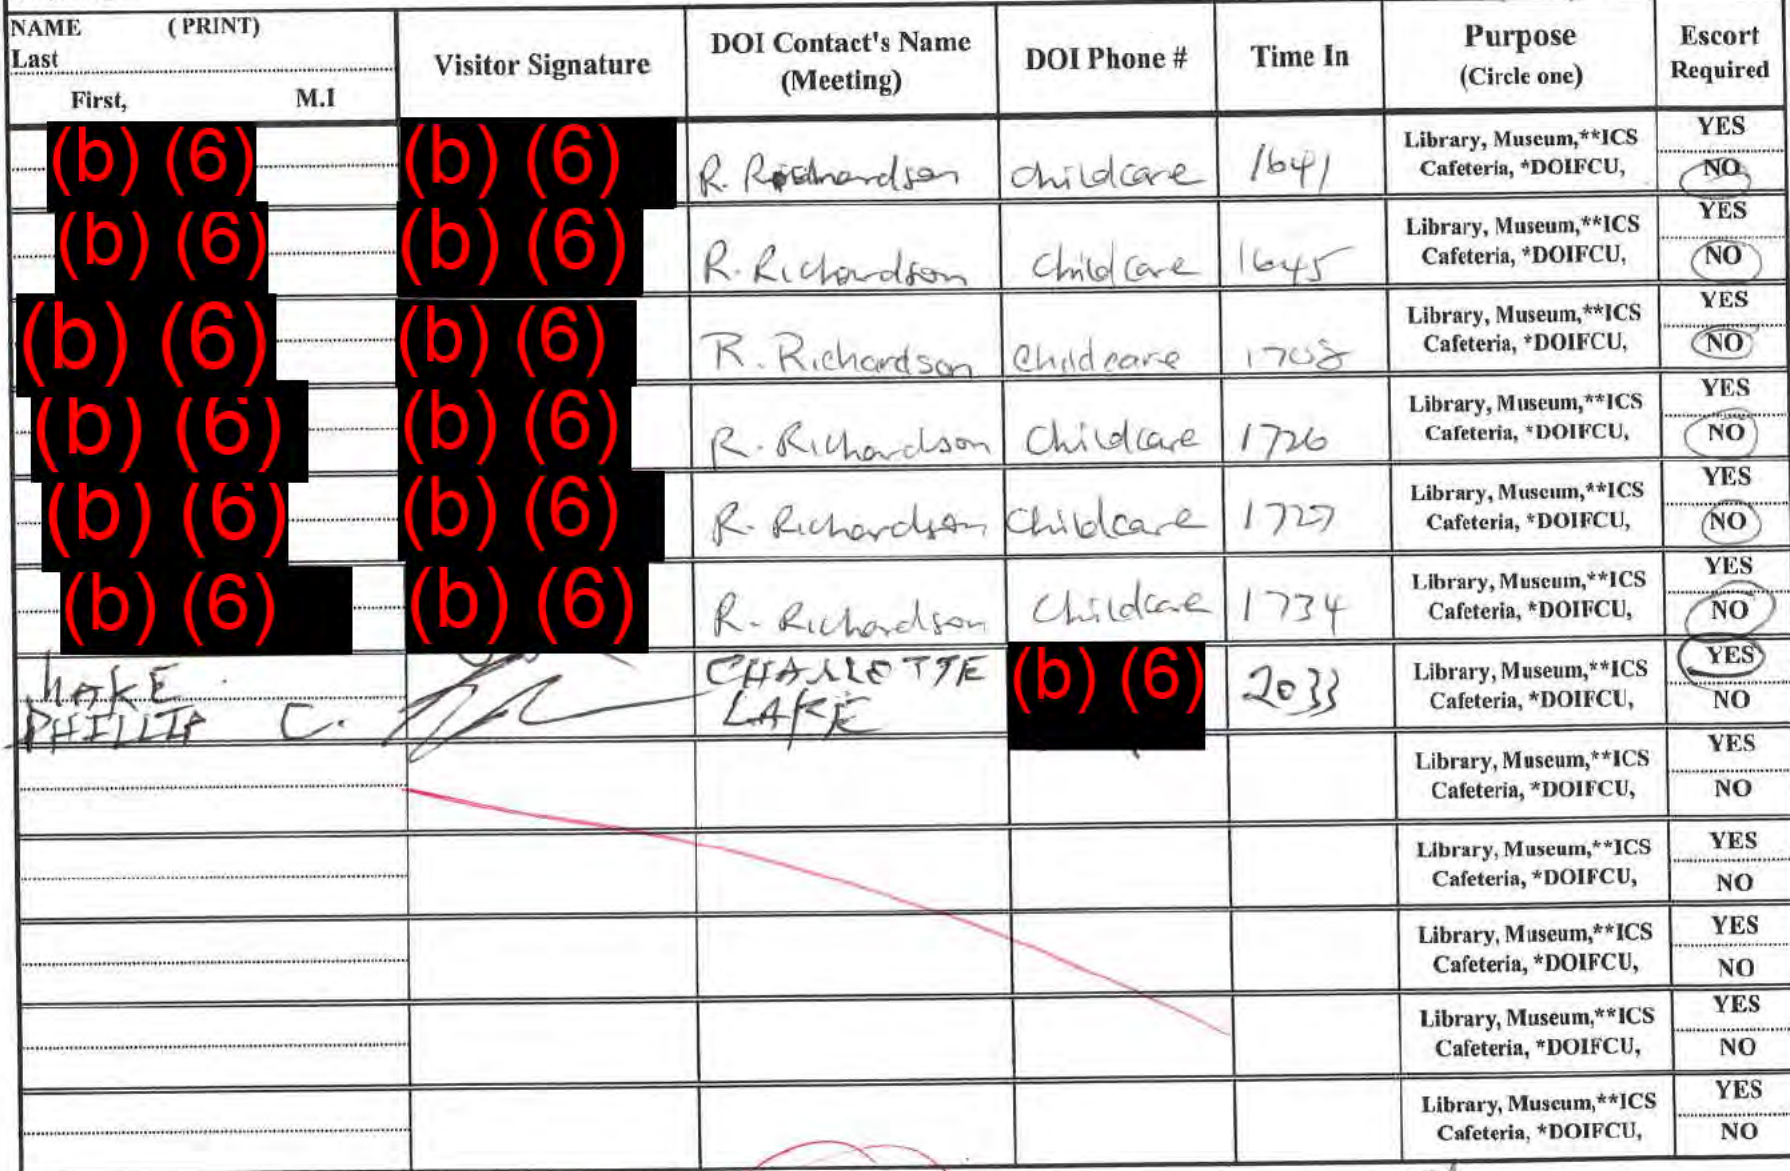 NAME (PRINT)
Last
First, M.I
Visitor Signature
DOI Contact's Name
(Meeting)
DOI Phone #
Time In
Purpose
(Circle one)
Escort
Required
(b) (6) (b) (6) R. Richardson Childcare 1641 Library, Museum,**ICS YES
Cafeteria, *DOIFCU, NO
(b) (6) (b) (6) R. Richardson Childcare 1645 Library, Museum,**ICS YES
Cafeteria, *DOIFCU, NO
(b) (6) (b) (6) R. Richardson Childcare 1708 Library, Museum,**ICS YES
Cafeteria, *DOIFCU, NO
(b) (6) (b) (6) R. Richardson Childcare 1726 Library, Museum,**ICS YES
Cafeteria, *DOIFCU, NO
(b) (6) (b) (6) R. Richardson Childcare 1727 Library, Museum,**ICS YES
Cafeteria, *DOIFCU, NO
(b) (6) (b) (6) R. Richardson Childcare 1734 Library, Museum,**ICS YES
Cafeteria, *DOIFCU, NO
LAKE CHARLOTTE (b) (6) 2033 Library, Museum,**ICS YES
PHILLIP C. LAKE Cafeteria, *DOIFCU, NO
Library, Museum,**ICS YES
Cafeteria, *DOIFCU, NO
Library, Museum,**ICS YES
Cafeteria, *DOIFCU, NO
Library, Museum,**ICS YES
Cafeteria, *DOIFCU, NO
Library, Museum,**ICS YES
Cafeteria, *DOIFCU, NO
Library, Museum,**ICS YES
Cafeteria, *DOIFCU, NO